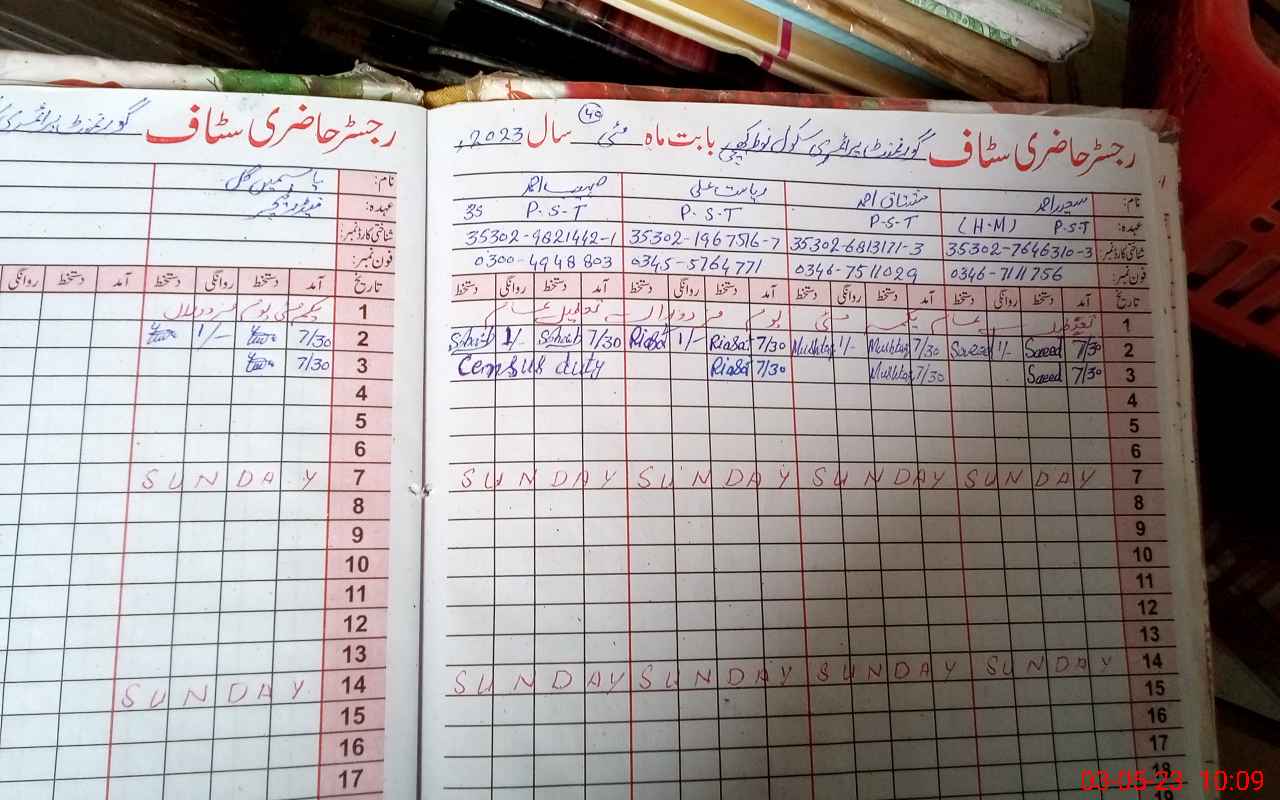 رجسٹر حاضری سٹاف گورنمنٹ پرائمری سکول بابت ماہ مئی سال 2023ء
40
نام: سعید احمد مشتاق احمد ریاست علی صہیب احمد
عہدہ: P.S.T (H.M) P.S.T P.S.T P.S.T
شناختی کارڈ نمبر: 35302-7646310-3 35302-6813171-3 35302-1967516-7 35302-9821442-1
فون نمبر: 0346-7111756 0346-7511029 0345-5764771 0300-4948803
تاریخ آمد دستخط روانگی دستخط آمد دستخط روانگی دستخط آمد دستخط روانگی دستخط آمد دستخط روانگی دستخط
1 یکم مئی یوم
2 7/30 Saeed 1/- Saeed 7/30 Mushtaq 1/- Mushtaq 7/30 Riasat 1/- Riasat 7/30 Sohaib 1/- Sohaib
3 7/30 Saeed 7/30 Mushtaq 7/30 Riasat Census duty
4
5
6
7 SUNDAY SUNDAY SUNDAY SUNDAY
8
9
10
11
12
13
14 SUNDAY SUNDAY SUNDAY SUNDAY
15
16
17
18
19
رجسٹر حاضری سٹاف گورنمنٹ پرائمری
نام: یاسمین گل
عہدہ:
شناختی کارڈ نمبر:
فون نمبر:
تاریخ آمد دستخط روانگی دستخط آمد دستخط روانگی
1 یکم مئی یوم
2 7/30 1/-
3 7/30
4
5
6
7 SUNDAY
8
9
10
11
12
13
14 SUNDAY
15
16
17
03-05-23 10:09